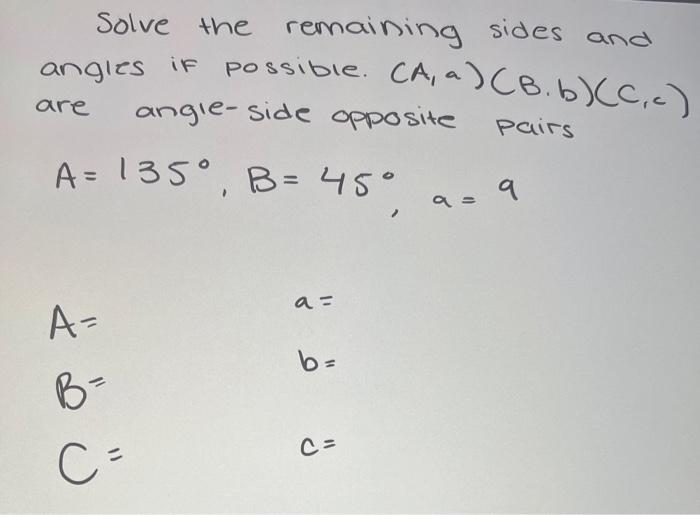 Solve the remaining sides and
angles if possible. (A, a) (B. b) (C, c)
are angle-side opposite pairs
A = 135°, B = 45°, a = 9
A =
a =
b =
B =
C =
c =